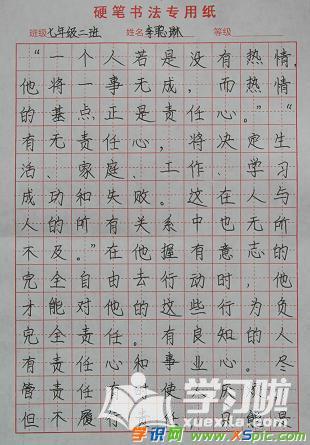 硬笔书法专用纸
班级 七年级二班 姓名 李聪琳 等级
“一个人若是没有热情,
他将一事无成,而热情
的基点正是责任心。”
有无责任心,将决定生
活、家庭、工作、学习
成功和失败。这在人与
人的所有关系中也无所
不及。”在他握有意志的
完全自由去行动时,他
才能对他的这些行为负
完全责任。有良知的人
有责任心和事业心。尽
管责任有 使
但不履行责任
学习啦
xuexila.com
学识网 www.xuexi.com